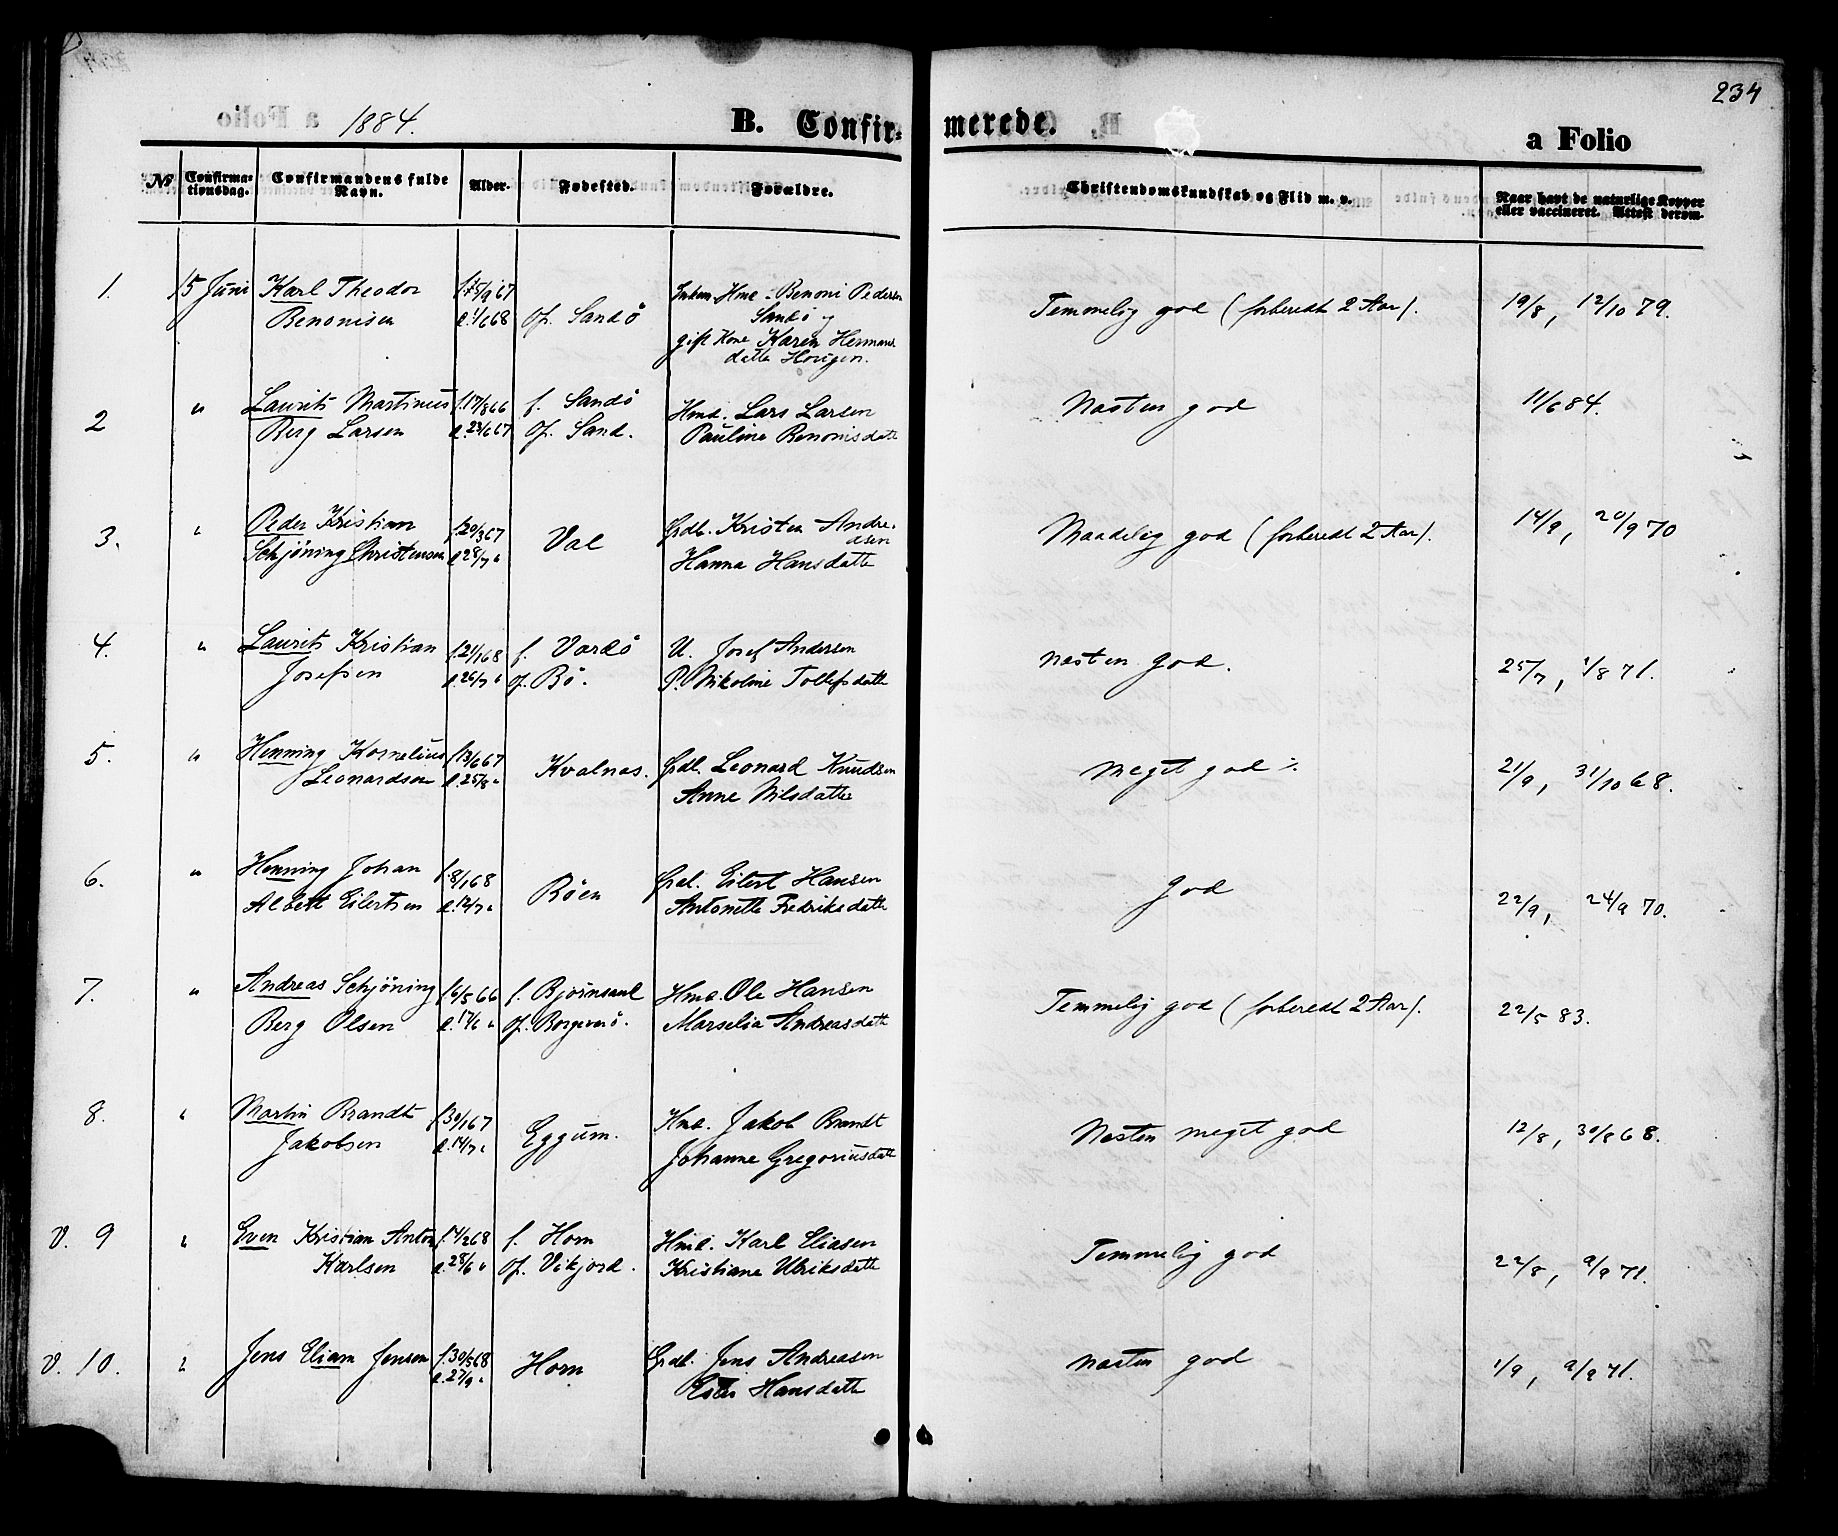 234
1884.
B. Confir-
merede.
a Folio
No
Confirma-
tionsdag.
Confirmandens fulde
Navn.
Alder.
Fødested.
Forældre.
Christendomskundskab og Flid m. v.
Naar havt de naturlige Kopper
eller vaccineret. Attest derom.
1.
15 Juni
Karl Theodor
Benonisen
f. 15/9 67
d. 1/6 68
Opf. Sandö
Hmd. Benoni Pedersen
Sandö og
gift Kone Karen Hermans
datter Horigen.
Temmelig god (forberedt 2 Aar).
19/8, 12/10 79.
2
"
Laurits Martinus
Berg Larsen
f. 17/8 66
d. 23/6 67
f. Sandö
Of. Sand.
Hmd. Lars Larsen
Pauline Benonisdatt
Næsten god
11/6 84.
3.
"
Peder Kristian
Schjöning Christensen
f. 20/3 67
d. 28/7 "
Val
Grdb. Kristen Andre-
asen
Hanna Hansdatte
Maadelig god (forberedt 2 Aar).
14/9, 20/9 70
4.
"
Laurits Kristian
Josefsen
f. 21/1 68
d. 26/7 "
f. Vardö
of. Bö.
U. Josef Andersen
P. Nikoline Tollefsdatte
næsten god.
25/7, 1/8 71.
5.
"
Henning Kornelius
Leonardsen
f. 13/6 67
d. 25/8 "
Kvalnæs.
Grdb. Leonard Knudsen
Anne Nilsdatte
Meget god ./.
21/9, 31/10 68.
6.
"
Henning Johan
Albett Eilertsen
f. 8/1 68
d. 12/7 "
Böen
Grdb. Eilert Hansen
Antonette Fredriksdatte
god
22/9, 24/9 70.
7.
"
Andreas Schjöning
Berg Olsen
f. 6/5 66
d. 17/6 "
f. Bjørnsand
of. Borgevær.
Hmd. Ole Hansen
Marselia Andreasdatt
Temmelig god (forberedt 2 Aar).
22/5 83.
8.
"
Martin Brandt
Jakobsen
f. 30/1 67
d. 14/7 "
Eggum.
Hmd. Jakob Brandt
Johanne Gregoriusdatt
Næsten meget god
12/8, 30/8 68.
V. 9
"
Even Kristian Anton
Karlsen
f. 14/2 68
d. 28/6 "
f. Horn
of. Vikjord.
Hmd. Karl Eliasen
Kristiane Ulriksdatte
Temmelig god
22/8, 9/9 71.
V. 10.
"
Jens Eliam Jensen
f. 30/5 68
d. 27/9 "
Horn
Grdb. Jens Andreasen
Ester Hansdatte
næsten god
1/9, 9/9 71.